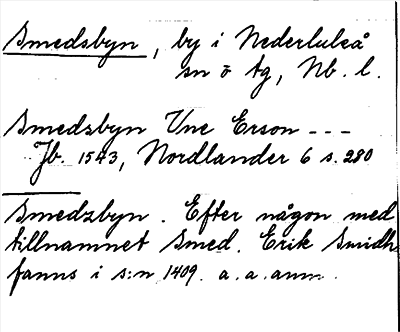 Smedsbyn, by i Nederluleå
sn ö tg, Nb. l.
Smedsbyn Une Erson ---
Jb. 1543, Nordlander 6 s. 280
Smedzbyn. Efter någon med
tillnamnet Smed. Erik Smidh
fanns i s:n 1409. a.a. anm.